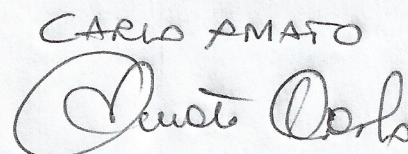 CARLO AMATO
Amato Carlo